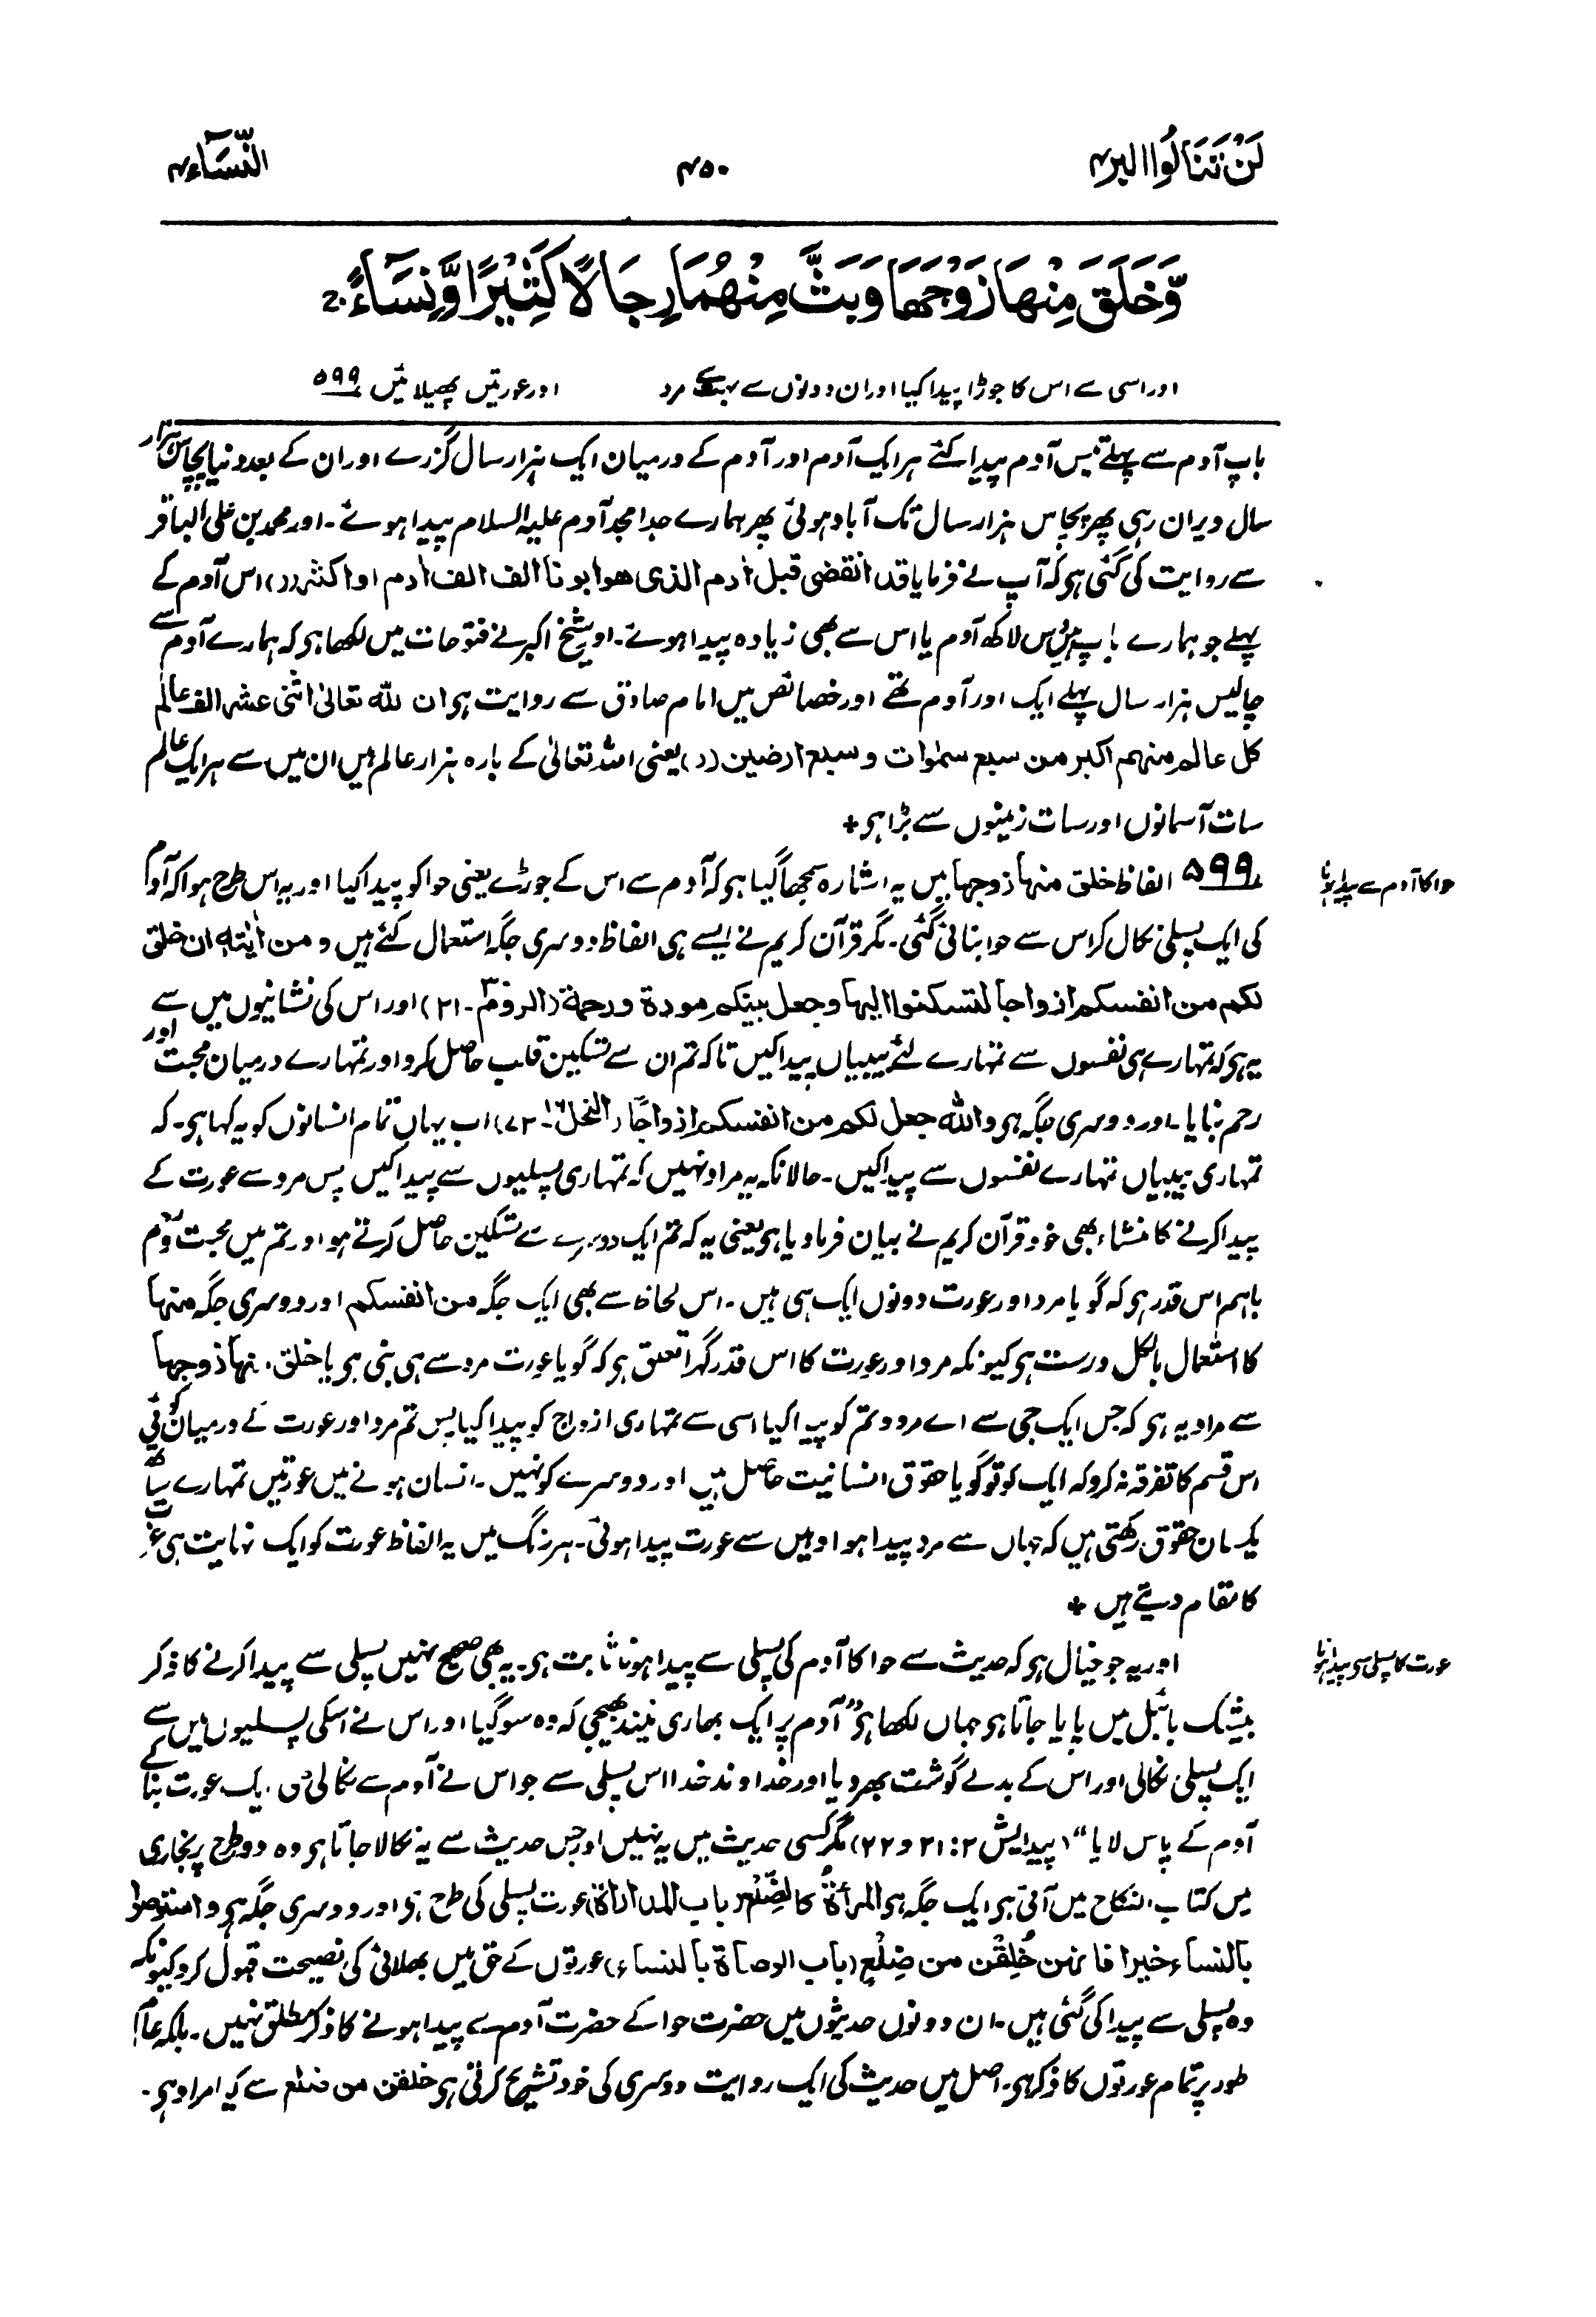 لَنْ تَنَالُوا البر۴
۴۵۰
النِّسَآء۴
وَّخَلَقَ مِنْهَا زَوْجَهَا وَبَثَّ مِنْهُمَا رِجَالًا كَثِيْرًا وَّنِسَآءً ۚ
اور اسی سے اس کا جوڑا پیدا کیا اور ان دونوں سے بہت سے مرد اور عورتیں پھیلائیں ۵۹۹
باپ آدم سے پہلے تیس آدم پیدا کئے ہر ایک آدم اور آدم کے درمیان ایک ہزار سال گزرے اور ان کے بعد دنیا پچاس ہزار
سال ویران رہی پھر پچاس ہزار سال تک آباد ہوئی پھر ہمارے جد امجد آدم علیہ السلام پیدا ہوئے۔ اور محمد بن علی الباقر
سے روایت کی گئی ہو کہ آپ نے فرمایا قد انقضی قبل اٰدم الذی هو ابونا الف الف اٰدم او اکثر (ر) اس آدم کے
پہلے جو ہمارے باپ ہیں دس لاکھ آدم یا اس سے بھی زیادہ پیدا ہوئے۔ اور شیخ اکبر نے فتوحات میں لکھا ہو کہ ہمارے آدم سے
چالیس ہزار سال پہلے ایک اور آدم تھے اور خصائص میں امام صادق سے روایت ہو ان للّٰہ تعالیٰ اثنی عشر الف عالم
کل عالم منهم اکبر من سبع سمٰوات و سبع ارضین (ر) یعنی اللہ تعالیٰ کے بارہ ہزار عالم ہیں ان میں سے ہر ایک عالم
سات آسمانوں اور سات زمینوں سے بڑا ہو +
حوا کا آدم سے پیدا ہونا
۵۹۹ الفاظ خلق منہا زوجہا میں یہ اشارہ سمجھا گیا ہو کہ آدم سے اس کے جوڑے یعنی حوا کو پیدا کیا اور یہ اس طرح ہوا کہ آدم
کی ایک پسلی نکال کر اس سے حوا بنائی گئی۔ مگر قرآن کریم نے ایسے ہی الفاظ دوسری جگہ استعمال کئے ہیں و من اٰیٰتہ ان خلق
لکم من انفسکم ازواجا لتسکنوا الیہا وجعل بینکم مودۃ و رحمۃ (الروم ۳۰۔ ۲۱) اور اس کی نشانیوں میں سے
یہ ہو کہ تمہارے ہی نفسوں سے تمہارے لئے بیبیاں پیدا کیں تاکہ تم ان سے تسکین قلب حاصل کرو اور تمہارے درمیان محبت اور
رحم بنایا۔ اور دوسری جگہ ہو واللہ جعل لکم من انفسکم ازواجًا (النحل ۱۶۔ ۷۲) اب یہاں تمام انسانوں کو یہ کہا ہو۔ کہ
تمہاری بیبیاں تمہارے نفسوں سے پیدا کیں۔ حالانکہ یہ مراد نہیں کہ تمہاری پسلیوں سے پیدا کیں پس مرد سے عورت کے
پیدا کرنے کا منشاء بھی خود قرآن کریم نے بیان فرما دیا ہو یعنی یہ کہ تم ایک دوسرے سے تسکین حاصل کرتے ہو اور تم میں محبت و رحم
باہم اس قدر ہو کہ گویا مرد اور عورت دونوں ایک ہی ہیں۔ اس لحاظ سے بھی ایک جگہ من انفسکم اور دوسری جگہ منہا
کا استعمال بالکل درست ہو کیونکہ مرد اور عورت کا اس قدر گہرا تعلق ہو کہ گویا عورت مرد سے ہی بنی ہو یا خلق منہا زوجہا
سے مراد یہ ہو کہ جس ایک جی سے اے مردو تم کو پیدا کیا اسی سے تمہاری ازواج کو پیدا کیا پس تم مرد اور عورت کے درمیان کوئی
اس قسم کا تفرقہ نہ کرو کہ ایک کو تو گویا حقوق انسانیت حاصل ہیں اور دوسرے کو نہیں۔ انسان ہونے میں عورتیں تمہارے ساتھ
یکساں حقوق رکھتی ہیں کہ جہاں سے مرد پیدا ہوا وہیں سے عورت پیدا ہوئی۔ ہر رنگ میں یہ الفاظ عورت کو ایک نہایت ہی عزت
کا مقام دیتے ہیں +
عورت کا پسلی سے پیدا ہونا
اور یہ جو خیال ہو کہ حدیث سے حوا کا آدم کی پسلی سے پیدا ہونا ثابت ہو۔ یہ بھی صحیح نہیں پسلی سے پیدا کرنے کا ذکر
بیشک بائبل میں پایا جاتا ہو جہاں لکھا ہو "آدم پر ایک بھاری نیند بھیجی کہ وہ سو گیا اور اس نے اسکی پسلیوں میں سے
ایک پسلی نکالی اور اس کے بدلے گوشت بھر دیا اور خداوند خدا اس پسلی سے جو اس نے آدم سے نکالی تھی ایک عورت بنا کے
آدم کے پاس لایا" (پیدایش ۲: ۲۱ و ۲۲) مگر کسی حدیث میں یہ نہیں اور جس حدیث سے یہ نکالا جاتا ہو وہ دو طرح پر بخاری
میں کتاب النکاح میں آئی ہو ایک جگہ ہو المرأۃُ کالضِّلَعِ (باب المداراۃ) عورت پسلی کی طرح ہو اور دوسری جگہ ہو واستوصوا
بالنساء خیرا فانهن خُلِقْن من ضِلَعٍ (باب الوصاۃ بالنساء) عورتوں کے حق میں بھلائی کی نصیحت قبول کرو کیونکہ
وہ پسلی سے پیدا کی گئی ہیں۔ ان دونوں حدیثوں میں حضرت حوا کے حضرت آدم سے پیدا ہونے کا ذکر مطلق نہیں۔ بلکہ عام
طور پر تمام عورتوں کا ذکر ہو۔ اصل میں حدیث کی ایک روایت دوسری کی خود تشریح کرتی ہو خلقن من ضلع سے کیا مراد ہو۔